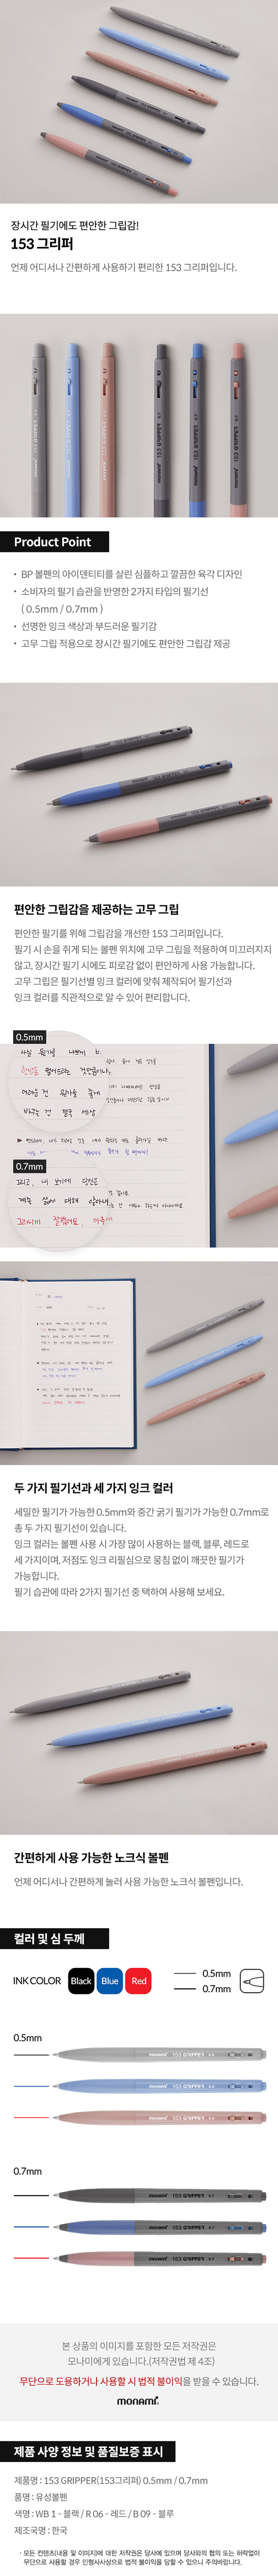 장시간 필기에도 편안한 그립감!
153 그리퍼
언제 어디서나 간편하게 사용하기 편리한 153 그리퍼입니다.
153 GRIPPER
monami
153 GRIPPER
monami
153 GRIPPER
monami
Product Point
· BP 볼펜의 아이덴티티를 살린 심플하고 깔끔한 육각 디자인
· 소비자의 필기 습관을 반영한 2가지 타입의 필기선
( 0.5mm / 0.7mm )
· 선명한 잉크 색상과 부드러운 필기감
· 고무 그립 적용으로 장시간 필기에도 편안한 그립감 제공
편안한 그립감을 제공하는 고무 그립
편안한 필기를 위해 그립감을 개선한 153 그리퍼입니다.
필기 시 손을 쥐게 되는 볼펜 위치에 고무 그립을 적용하여 미끄러지지
않고, 장시간 필기 시에도 피로감 없이 편안하게 사용 가능합니다.
고무 그립은 필기선별 잉크 컬러에 맞춰 제작되어 필기선과
잉크 컬러를 직관적으로 알 수 있어 편리합니다.
0.5mm
0.7mm
두 가지 필기선과 세 가지 잉크 컬러
세밀한 필기가 가능한 0.5mm와 중간 굵기 필기가 가능한 0.7mm로
총 두 가지 필기선이 있습니다.
잉크 컬러는 볼펜 사용 시 가장 많이 사용하는 블랙, 블루, 레드로
세 가지이며, 저점도 잉크 리필심으로 뭉침 없이 깨끗한 필기가
가능합니다.
필기 습관에 따라 2가지 필기선 중 택하여 사용해 보세요.
간편하게 사용 가능한 노크식 볼펜
언제 어디서나 간편하게 눌러 사용 가능한 노크식 볼펜입니다.
컬러 및 심 두께
INK COLOR Black Blue Red 0.5mm
0.7mm
0.5mm
monami 153 GRIPPER
monami 153 GRIPPER
monami 153 GRIPPER
0.7mm
monami 153 GRIPPER 0.7
monami 153 GRIPPER 0.7
monami 153 GRIPPER 0.7
본 상품의 이미지를 포함한 모든 저작권은
모나미에게 있습니다.(저작권법 제 4조)
무단으로 도용하거나 사용할 시 법적 불이익을 받을 수 있습니다.
monami
제품 사양 정보 및 품질보증 표시
제품명 : 153 GRIPPER(153그리퍼) 0.5mm / 0.7mm
품명 : 유성볼펜
색명 : WB 1 - 블랙 / R 06 - 레드 / B 09 - 블루
제조국명 : 한국
· 모든 컨텐츠(내용 및 이미지)에 대한 저작권은 당사에 있으며 당사와의 협의 또는 허락없이
무단으로 사용할 경우 민형사사상으로 법적 불이익을 당할 수 있으니 주의바랍니다.